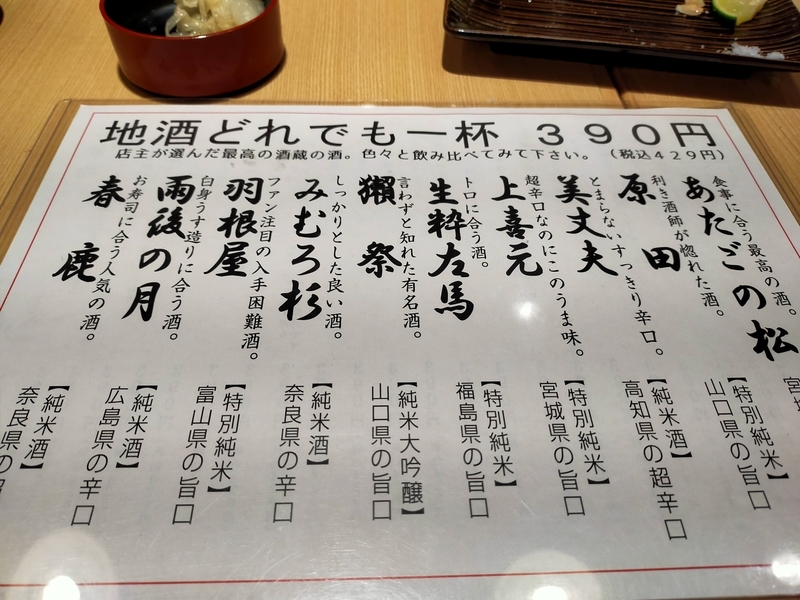 地酒どれでも一杯 ３９０円
店主が選んだ最高の酒蔵の酒。色々と飲み比べてみて下さい。（税込４２９円）
食事に合う最高の酒。
あたごの松
宮
利き酒師が惚れた酒。
原田
【特別純米】
山口県の旨口
とまらないすっきり辛口。
美丈夫
【純米酒】
高知県の超辛口
超辛口なのにこのうま味。
上喜元
【特別純米】
宮城県の旨口
トロに合う酒。
生粋左馬
【特別純米】
福島県の旨口
言わずと知れた有名酒。
獺祭
【純米大吟醸】
山口県の旨口
しっかりとした良い酒。
みむろ杉
【純米酒】
奈良県の辛口
ファン注目の入手困難酒。
羽根屋
【特別純米】
富山県の旨口
白身うす造りに合う酒。
雨後の月
【純米酒】
広島県の辛口
お寿司に合う人気の酒。
春鹿
【純米酒】
奈良県の